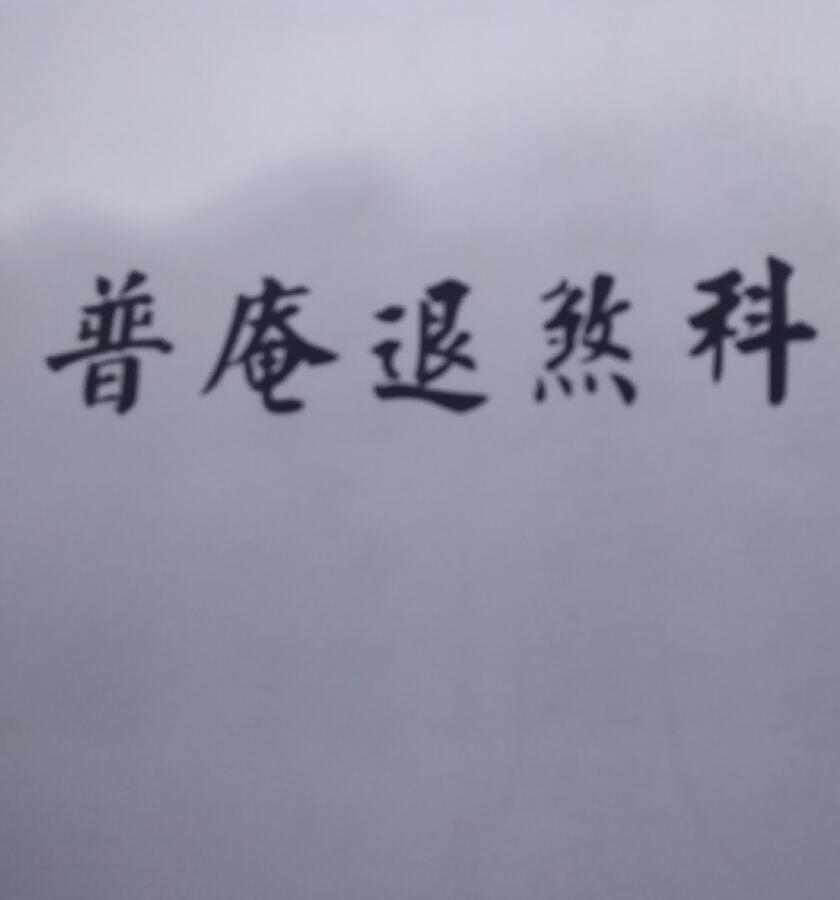 普庵退煞科